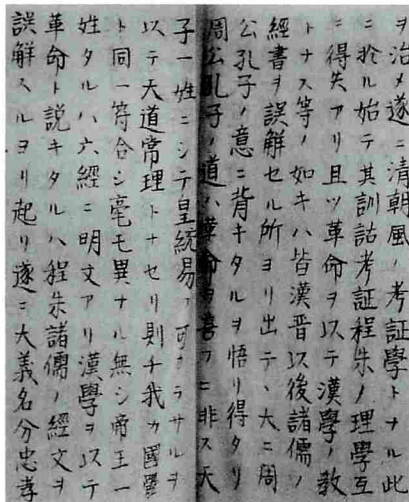 ヲ治メ遂ニ清朝風ノ考証學トナル此
ニ於ル始テ其訓詁考証程朱ノ理學互
ニ得失アリ且ツ革命ヲ以テ漢學ノ教
トナス等ノ如キハ皆漢晋以後諸儒ノ
經書ヲ誤解セル所ヨリ出テ、大ニ周
公孔子ノ意ニ背キタルヲ悟リ得タリ
周公孔子ノ道ハ革命ヲ喜フニ非ス天
子一姓ニシテ皇統易フ可カラサルヲ
以テ大道常理トナセリ則チ我カ國體
ト同一符合シ毫モ異ナル無シ帝王一
姓タルハ六經ニ明文アリ漢學ヲ以テ
革命ト説キタルハ程朱諸儒ノ經文ヲ
誤解スルヨリ起リ遂ニ大義名分忠孝